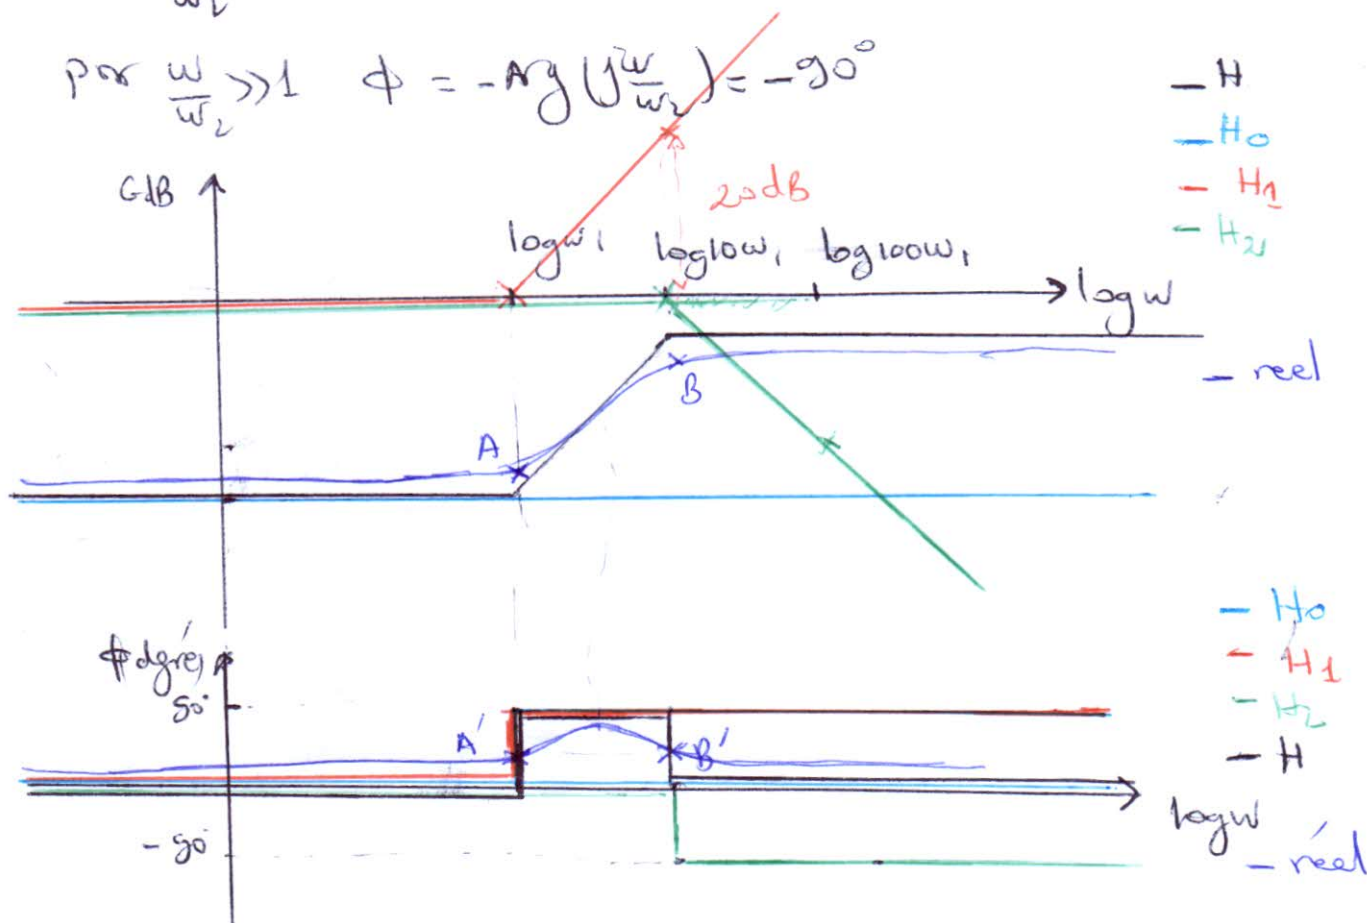 w2
por w/w2 >>1 ϕ = -Arg (j w/w2) = -90°
- H
- H0
- H1
- H2
GdB
20dB
logw1 log10w1 log100w1
logw
- réel
B
A
- H0
- H1
- H2
- H
ϕ dgré
90°
A'
B'
logw
-90°
- réel